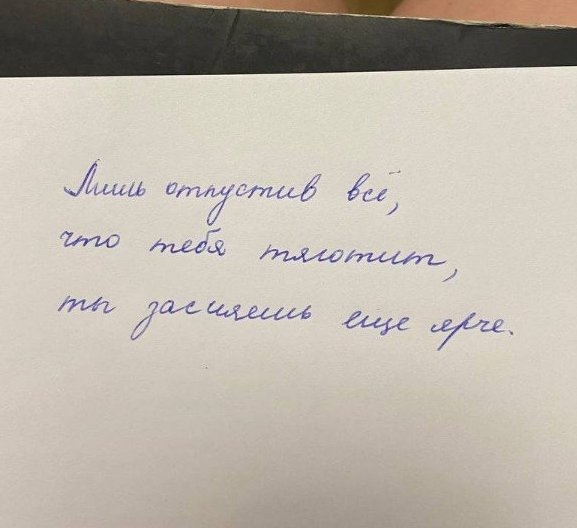 Лишь отпустив всё,
что тебя тяготит,
ты засияешь еще ярче.